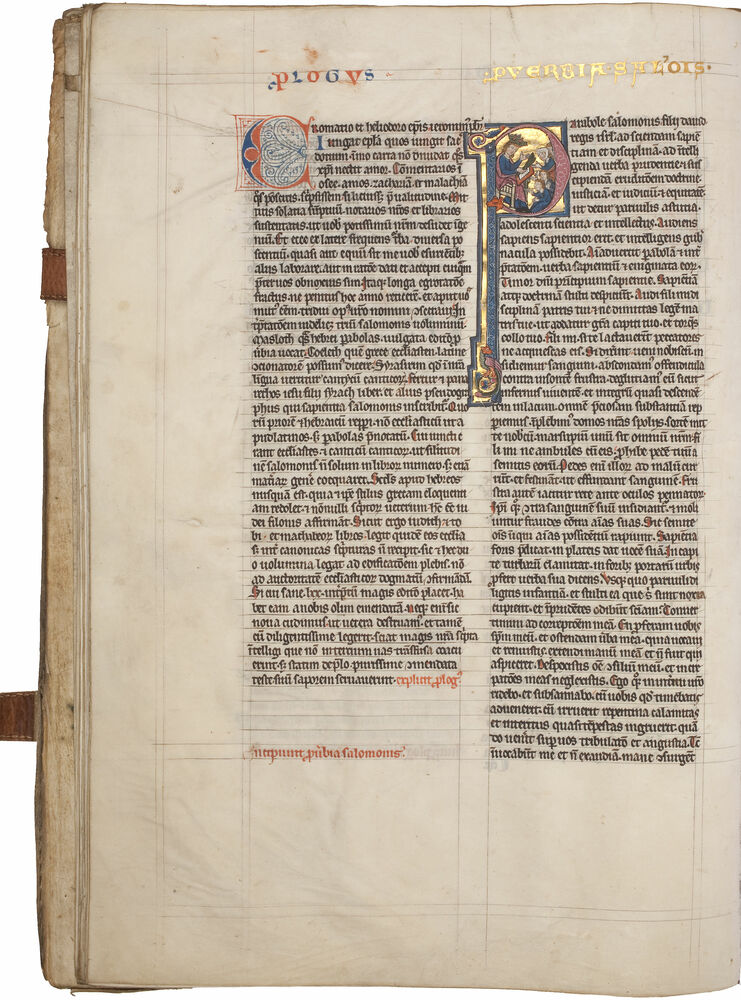 PLOGVS
PVERBIA·SALOIS·
Cromatio et heliodoro ep̄is ieronim̄ pb̄r
Iungat ep̄la quos iungit sac̄
dotium· ĩmo carta nō diuidat q̄s
xp̄i nectit amor· Cōmentarios ĩ
osee· amos· zachariā et malachiā
q̄s poscitis· sc̄psissem si licuiss̄· p̄ ualitudine· Mit
titis solatia sūptuū· notarios nr̄os et librarios
sustentatis· ut uob̄ potissimū nr̄m desudet ige
niū· Et ecce ex latere freq̄ens t̄ba diuersa po
scentiū· quasi aut equū sit me uob̄ esurientib᷒
aliis laborare· aut in ratōe dati et accepti cuiq̄m
p̄ter uos obnoxius sim· Itaq᷒ longa egrotatōe
fractus· ne penitus hoc anno reticerē· et aput uos
mut᷒ essem· tridui op᷒ ur̄o nomini ɔsecraui· In
t̄ptatōem uidelic᷒ triū salomonis uoluminū·
Masloth q̄s hebrei pabolas· uulgata editio p̄
u̇bia uocat· Coeleth quē grece eccl̄iasten· latine
ɔcionatorē possum᷒ dicere· Syrasirim qd̄ ī nr̄am
ligua uertitur canticū canticoꝝ· Fertur et pana
rethos iesu filii syrach liber· et alius pseudogra
phus qui sapientia salomonis inscribit᷒· Quoꝝ
euī priorē ƶ hebraicū repp̄i· nō eccl̄iasticū ut a
pud latinos· s; pabolas p̄notatū· Cui iuncti e
rant eccl̄iastes et canticū canticoꝝ· ut similitudi
nē salomonis n̄ solum ī librox̄ numero· s; etiā
mat̄iaꝝ gen̄e coequaret· Sc̄d̄s apud hebreos
nusquā est· quia ƶ ip̄e stilus grecam eloquenti
am redolet· ƶ nōnulli sc̄ptoꝝ ueterum hc̄ eē iu
dei filonis affirmāt· Sicut ergo iudith ƶ to
bi· et machabeoꝝ libros· legit quidē eos eccl̄ia
s; int᷒ canonicas sc̄pturas n̄ recipit· sic ƶ hec du
o uolumina legat ad edificatōem plebis· nō
ad auctoritatē eccl̄iasticoꝝ dogmatū ɔfirmādā·
Si cui sane lxx· int̄p̄tū magis editō placet· ha
bet eam a nobis olim emendatā· neq᷒ enī sic
noua cudimus· ut uetera destruam᷒· et tamē
cū diligentissime legerit· sciat magis nr̄a sc̄pta
intelligi que nō in tertium uas transfusa coacu
erint· s; statim de p̄lo purissime ɔmendata
teste· suū saporem seruauerint· explicit p̄log᷒·
Incipiunt p̄u̇bia salomonis·
Parabole salomonis filii dauid
regis isr̄l· ad sciendam sapiē
tiam et disciplinā· ad ītelli
genda uerba prudentie· ƶ sus
cipiendā eruditōem doctrine·
iusticiā· et iudiciū ƶ equitatē·
ut detur paruulis astutia·
adolescenti scientia et intellectus· Audiens
sapiens sapientior erit· et intelligens gub̄
nacula possidebit· Aiaduertet pabolā ƶ int̄
p̄tatōem· uerba sapientium ƶ enigmata eoꝝ·
Timor dn̄i p̄ncipium sapientie· Sapientiā
atq᷒ doctrinā stulti despiciūt· Audi fili mi di
sciplinā patris tui ƶ ne dimittas legē ma
tris tue· ut addatur gr̄a capiti tuo· et torq̄s
collo tuo· Fili mi· si te lactauerīt peccatores
ne acquiescas eis· Si dixerīt· ueni nobiscū· in
sidiemur sanguini· abscondam᷒ offendicula
contra insontē frustra· deglutiam᷒ eū sicut
infernus uiuentē· et integrū quasi descendē
tem in lacum· omnē p̄ciosam substantiā rep
piem᷒· īplebim᷒ domos nr̄as spoliis· sortē mit
te nobiscū· marsupiū unū sit omniū nr̄m· fi
li mi ne ambules cū eis· phibe pedē tuū a
semitis eorū· Pedes enī illoꝝ ad malū cur
rūt· et festināt ut effundant sanguinē· Fru
stra autē iacitur rete ante oculos pennatoꝝ·
Ip̄i q᷒ ɔtra sanguinē suū insidiant᷒· ƶ moli
untur fraudes cōtra aīas suas· Sic semite
oīs auari aīas possidētiū rapiunt· Sapientia
foris p̄dicat· in plateis dat uocē suā· In capi
te turbarū clamitat· in forib᷒ portarū urbis
p̄fert uerba sua dicens· Vsq᷒quo paruuli di
ligitis infantiā· et stulti ea que s̄ sunt noxia
cupient· et īprudētes odibūt sciam᷒· Conuer
timini ad correptōem meā· En p̄feram uobis
sp̄m meū· et ostendam u̇ba mea· quia uocaui
et renuistis· extendi manū meā et n̄ fuit qui
aspiceret· Despexistis oē ɔsilium meū· et incre
patōes meas neglexistis· Ego q᷒ in interitu ur̄o
ridebo· et subsannabo· cū uobis qd̄ timebatis
aduenerit· cū irruerit repentina calamitas
et interitus quasi tēpestas ingruerit· quā
do uenīt sup uos tribulatō et angustia· Tc̄
inuocabūt me et n̄ exaudiā· mane ɔsurgēt